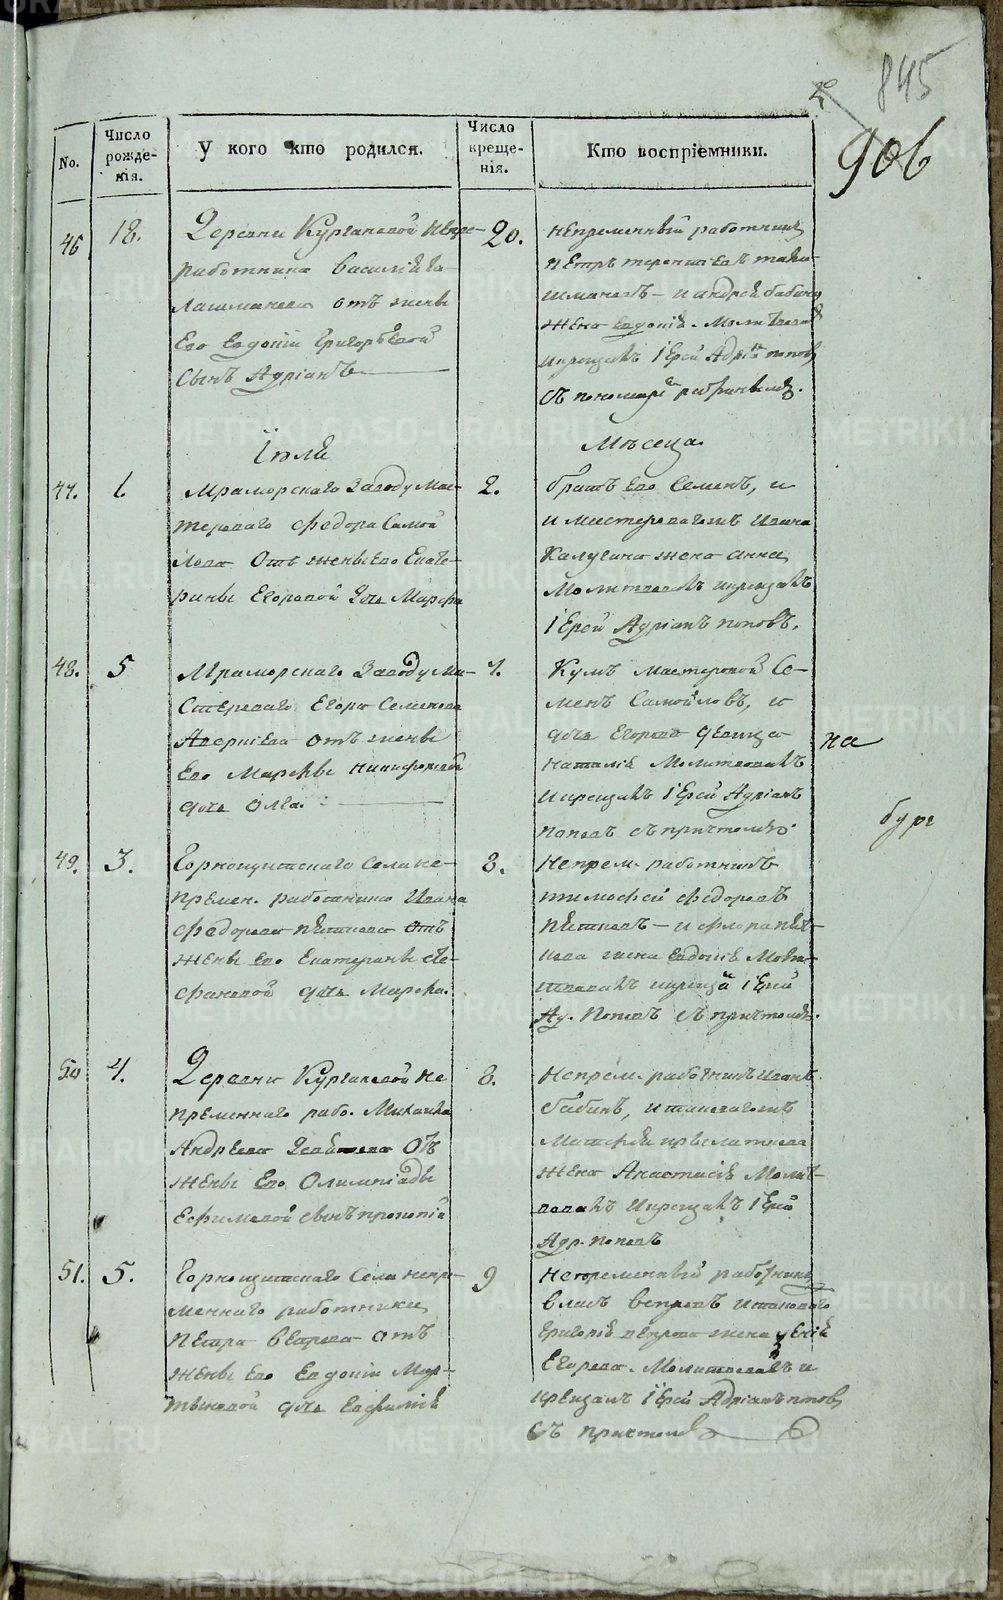 845
906
No.
Число рожде-нія.
У кого кто родился.
Число креще-нія.
Кто воспріемники.
46
18.
Деревни Кургановой непре-
работника Василія Та-
лашманова отъ жены
Его Евдокіи Григорьевой
Сынъ Адріанъ
20.
непременный работникъ
Петръ Терентіевъ тала-
шмановъ – и андрея бабина
жена Евдокія. Молитвовалъ
икрещалъ іерей Адріанъ попов
съ пономаремъ
Іюля
Мѣсеца
47.
1.
Мраморскаго Заводу Мас-
тероваго Федора Самой
лова Отъ жены Его Екате-
рины Егоровой дочь Марфа
2.
братъ Его Семенъ, и
и мастероваго Ивана
Калугина жена анна
Молитвовалъ икрещалъ
іерей Адріанъ поповъ.
48.
5
Мраморскаго Заводу Ма-
стероваго Егора Семенова
Аверкіева отъ жены
Его Марфы Никифоровой
дочь Олга.
7.
Кумъ мастеровой Се-
менъ Самойловъ, и
дочь Егорова девица
Наталія Молитвовалъ
икрещалъ іерей Адріанъ
поповъ съ причтомъ
на
бург
49.
3.
Горнощитскаго Села не-
премен. работника Ивана
Федорова Пѣткова отъ
жены Его Екатерины Сте-
фановой дочь Марфа.
8.
Непрем. работникъ
тимофей Федоровъ
– и флора
жена Евдокія Моли-
твовалъ икрещалъ іерей
Ад. Поповъ съ причтомъ.
50
4.
Деревни Кургановой не
пременнаго рабо. Михаила
Андреева отъ
жены Его Олимпіады
Ефимовой сынъ прокопій
8.
Непрем. работникъ Иванъ
бабинъ, и
Матфея
жена Анастасія Молит-
вовалъ Икрещалъ іерей
Адр. поповъ
51.
5.
Горнощитскаго Села непре-
меннаго работника
Петра Вепрева отъ
жены Его Евдокіи Мар-
тыновой дочь Евфимія
9
Непременный работникъ
Власъ Вепревъ
Григорія Петрова жена
Егорова. Молитвовалъ и
крещалъ іерей Адріанъ попов
съ причтомъ
METRIKI.GASO-URAL.RU